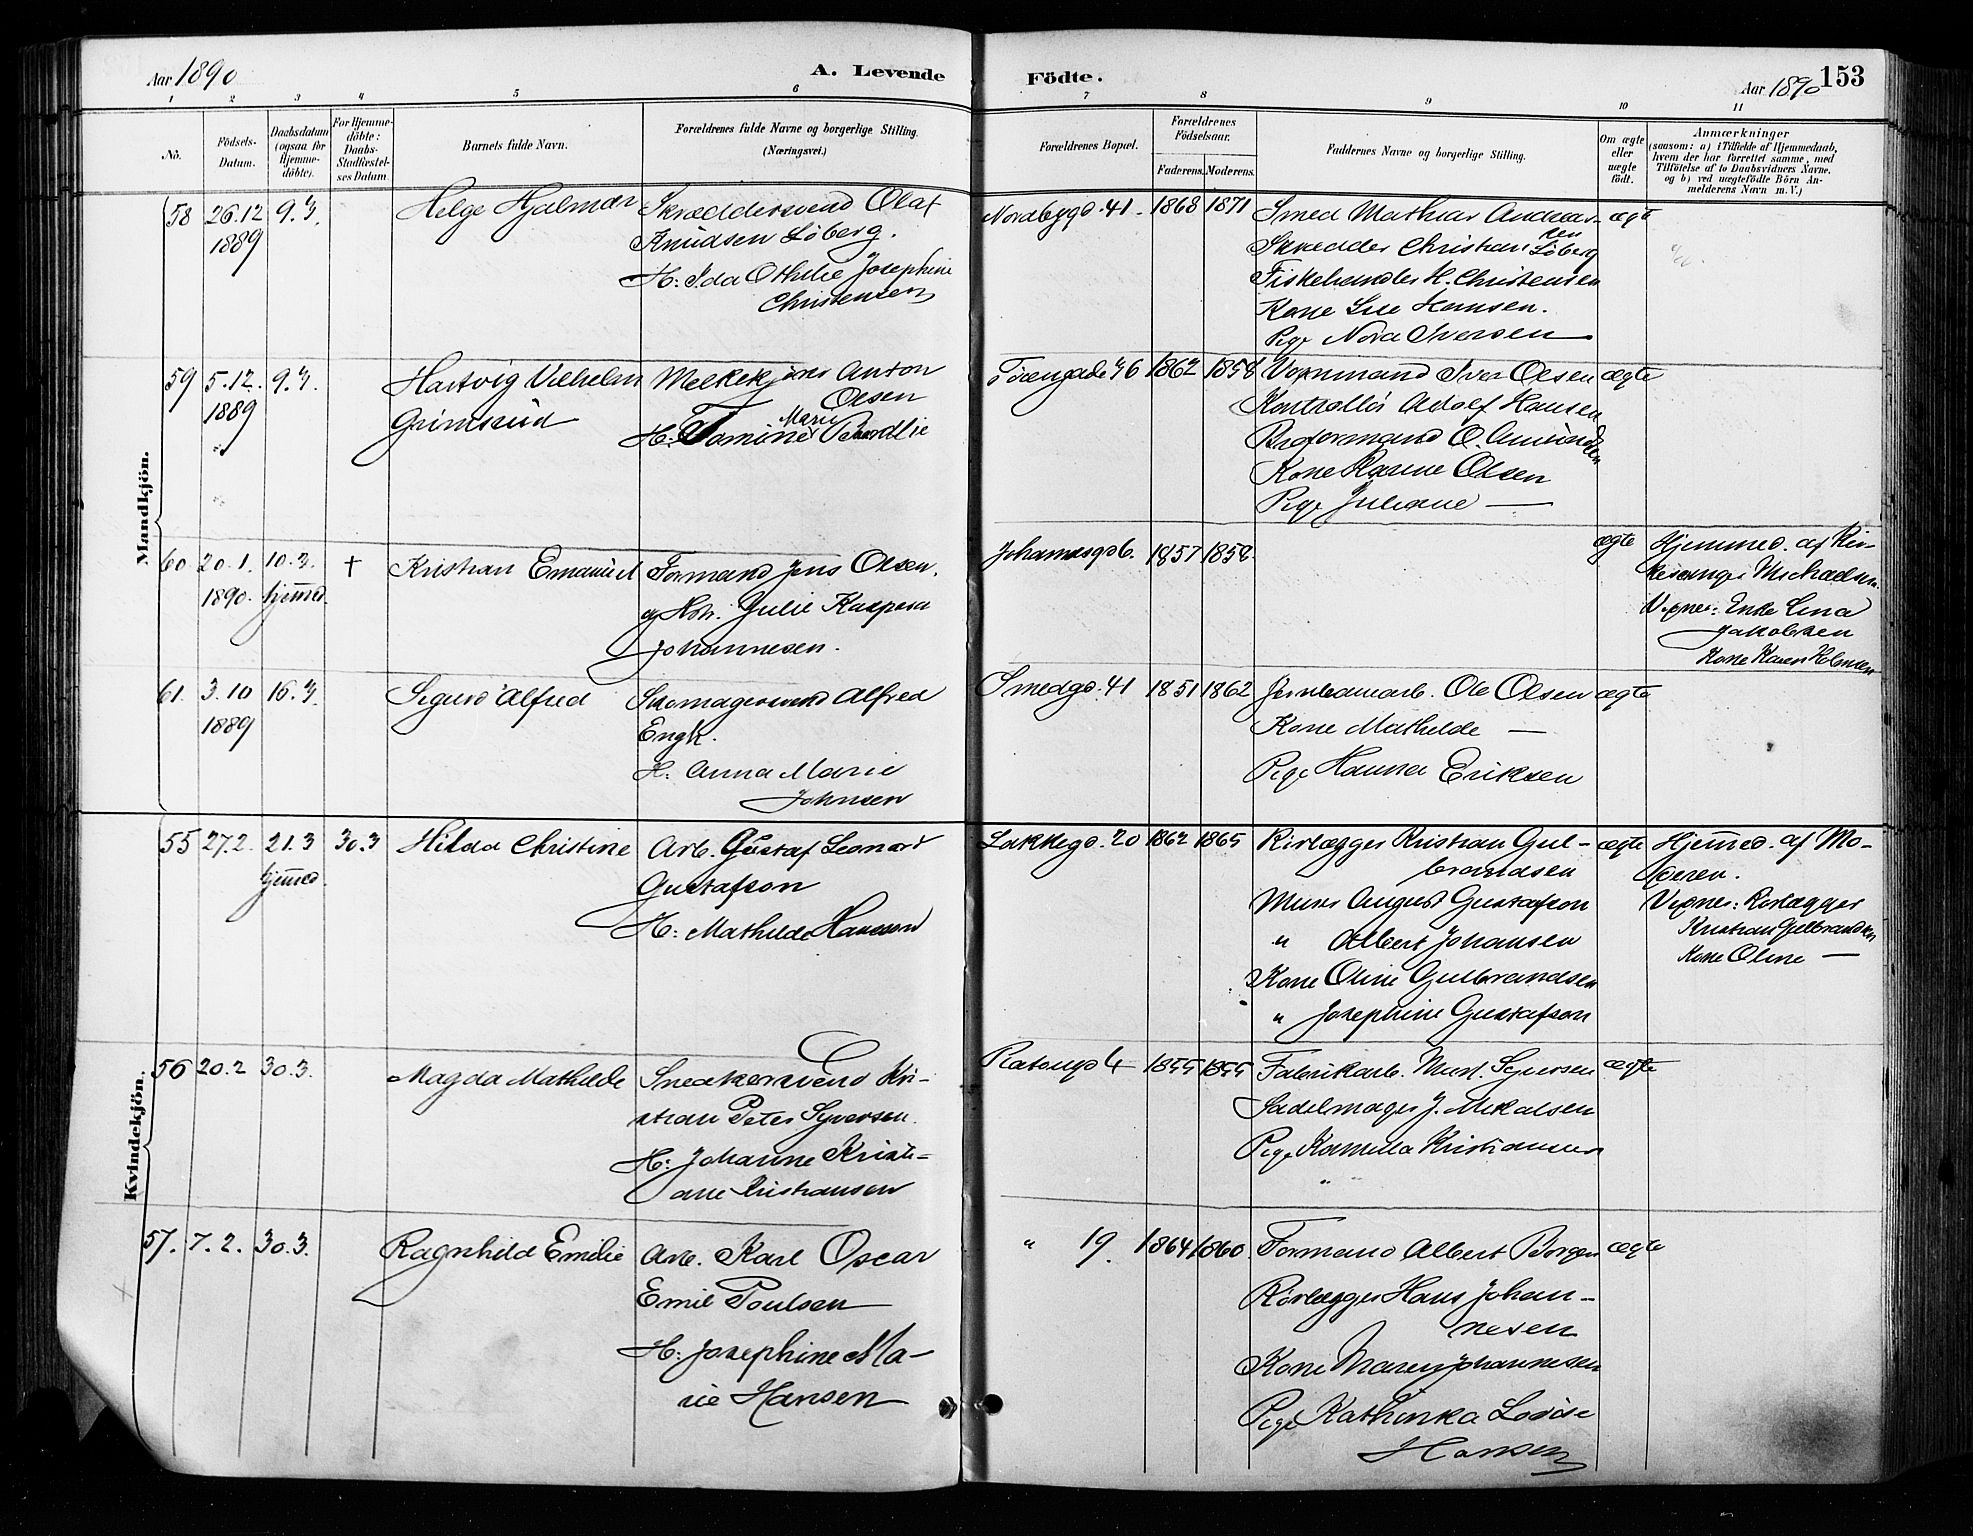 Aar 1890
A. Levende
Födte.
Aar 1890
153
1 2 3 4 5 6 7 8 9 10 11
No.
Födsels-
Datum.
Daabsdatum
(ogsaa for
Hjemme-
döbte).
For Hjemme-
döbte:
Daabs-
Stadfæstel-
ses Datum.
Barnets fulde Navn.
Forældrenes fulde Navne og borgerlige Stilling.
(Næringsvei.)
Forældrenes Bopæl.
Forældrenes
Födselsaar.
Faderens. Moderens.
Faddernes Navne og borgerlige Stilling.
Om ægte
eller
uægte
födt.
Anmærkninger
(saasom: a) i Tilfælde af Hjemmedaab,
hvem der har forrettet samme, med
Tilföielse af to Daabsvidners Navne,
og b) ved uægtefödte Börn An-
melderens Navn m. V.)
Mandkjön.
58 26.12 9.3. Helge Hjalmar Skræddersvend Olaf
1889 Knudsen Löberg.
H: Ida Othilie Josephine
Christensen
Nordbygd. 41. 1868 1871 Smed Mathias Andreas- ægte
sen
Skrædder Christian Löberg
Fiskehandler H. Christensen
Kone Hansen.
Pige Nora Iversen
59 5.12. 9.3. Hartvig Vilhelm Anton
1889 Grimsrud Olsen
Marie
H:
46 1862 Iver Olsen ægte
Kontrollör Adolf Hansen
O. Amund
sen
Kone Karine Olsen
Pige Juliane —
60 20.1. 10.3. † Kristian Emanuel Formand Jens Olsen.
1890. hjemmed. og Julie Kaspara
Johannesen.
Johannesgd 6. 1857 1858 ægte Hjemmed. af
Michaelsen.
Enke Lina
Jakobsen
Kone Karen
61. 3.10 16.3. Sigurd Alfred Skomagersvend Alfred
1889 Engh.
H: Anna Marie
Johnsen
Smedgd. 41 1851 1862 Jernbanearb. Ole Olsen ægte
Kone Mathilde —
Pige Hanna Eriksen
Kvindekjön.
55 27.2. 21.3 30.3 Hilda Christine Arb. Gustaf Leonard
hjemmed. Gustafson
H: Mathilde Hansson
Lakkegd. 20 1862 1865 Rörlægger Kristian Gul- ægte Hjemmed. af Mo-
brandsen deren.
Murer August Gustafson Rörlægger
" Albert Johansen Kristian Gulbrandsen
Kone Oline Gulbrandsen Kone Oline —
" Josephine Gustafson
56 20.2 30.3. Magda Mathilde Snedkersvend Kri-
stian Peter Syversen.
H: Johanne Kristi-
ane Kristiansen
4 1855 1855 Fabrikarb. Syversen ægte
Sadelmager J. Mikalsen
Pige Kamilla Kristiansen
57. 7.2. 30.3. Ragnhild Emilie Arb. Karl Oscar
Emil Poulsen
H: Josephine Ma-
rie Hansen
" 19. 1864 1860. Formand Albert Borgen ægte
Rörlægger Hans Johan-
nesen
Kone Maren Johannesen
Pige Kathinka Lovise
Hansen